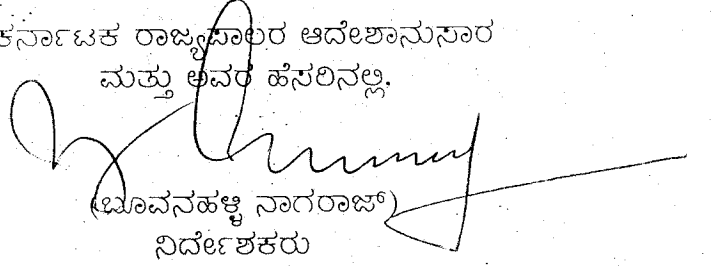 ಕರ್ನಾಟಕ ರಾಜ್ಯಪಾಲರ ಆದೇಶಾನುಸಾರ
ಮತ್ತು ಅವರ ಹೆಸರಿನಲ್ಲಿ.
(ಬೂವನಹಳ್ಳಿ ನಾಗರಾಜ್)
ನಿರ್ದೇಶಕರು